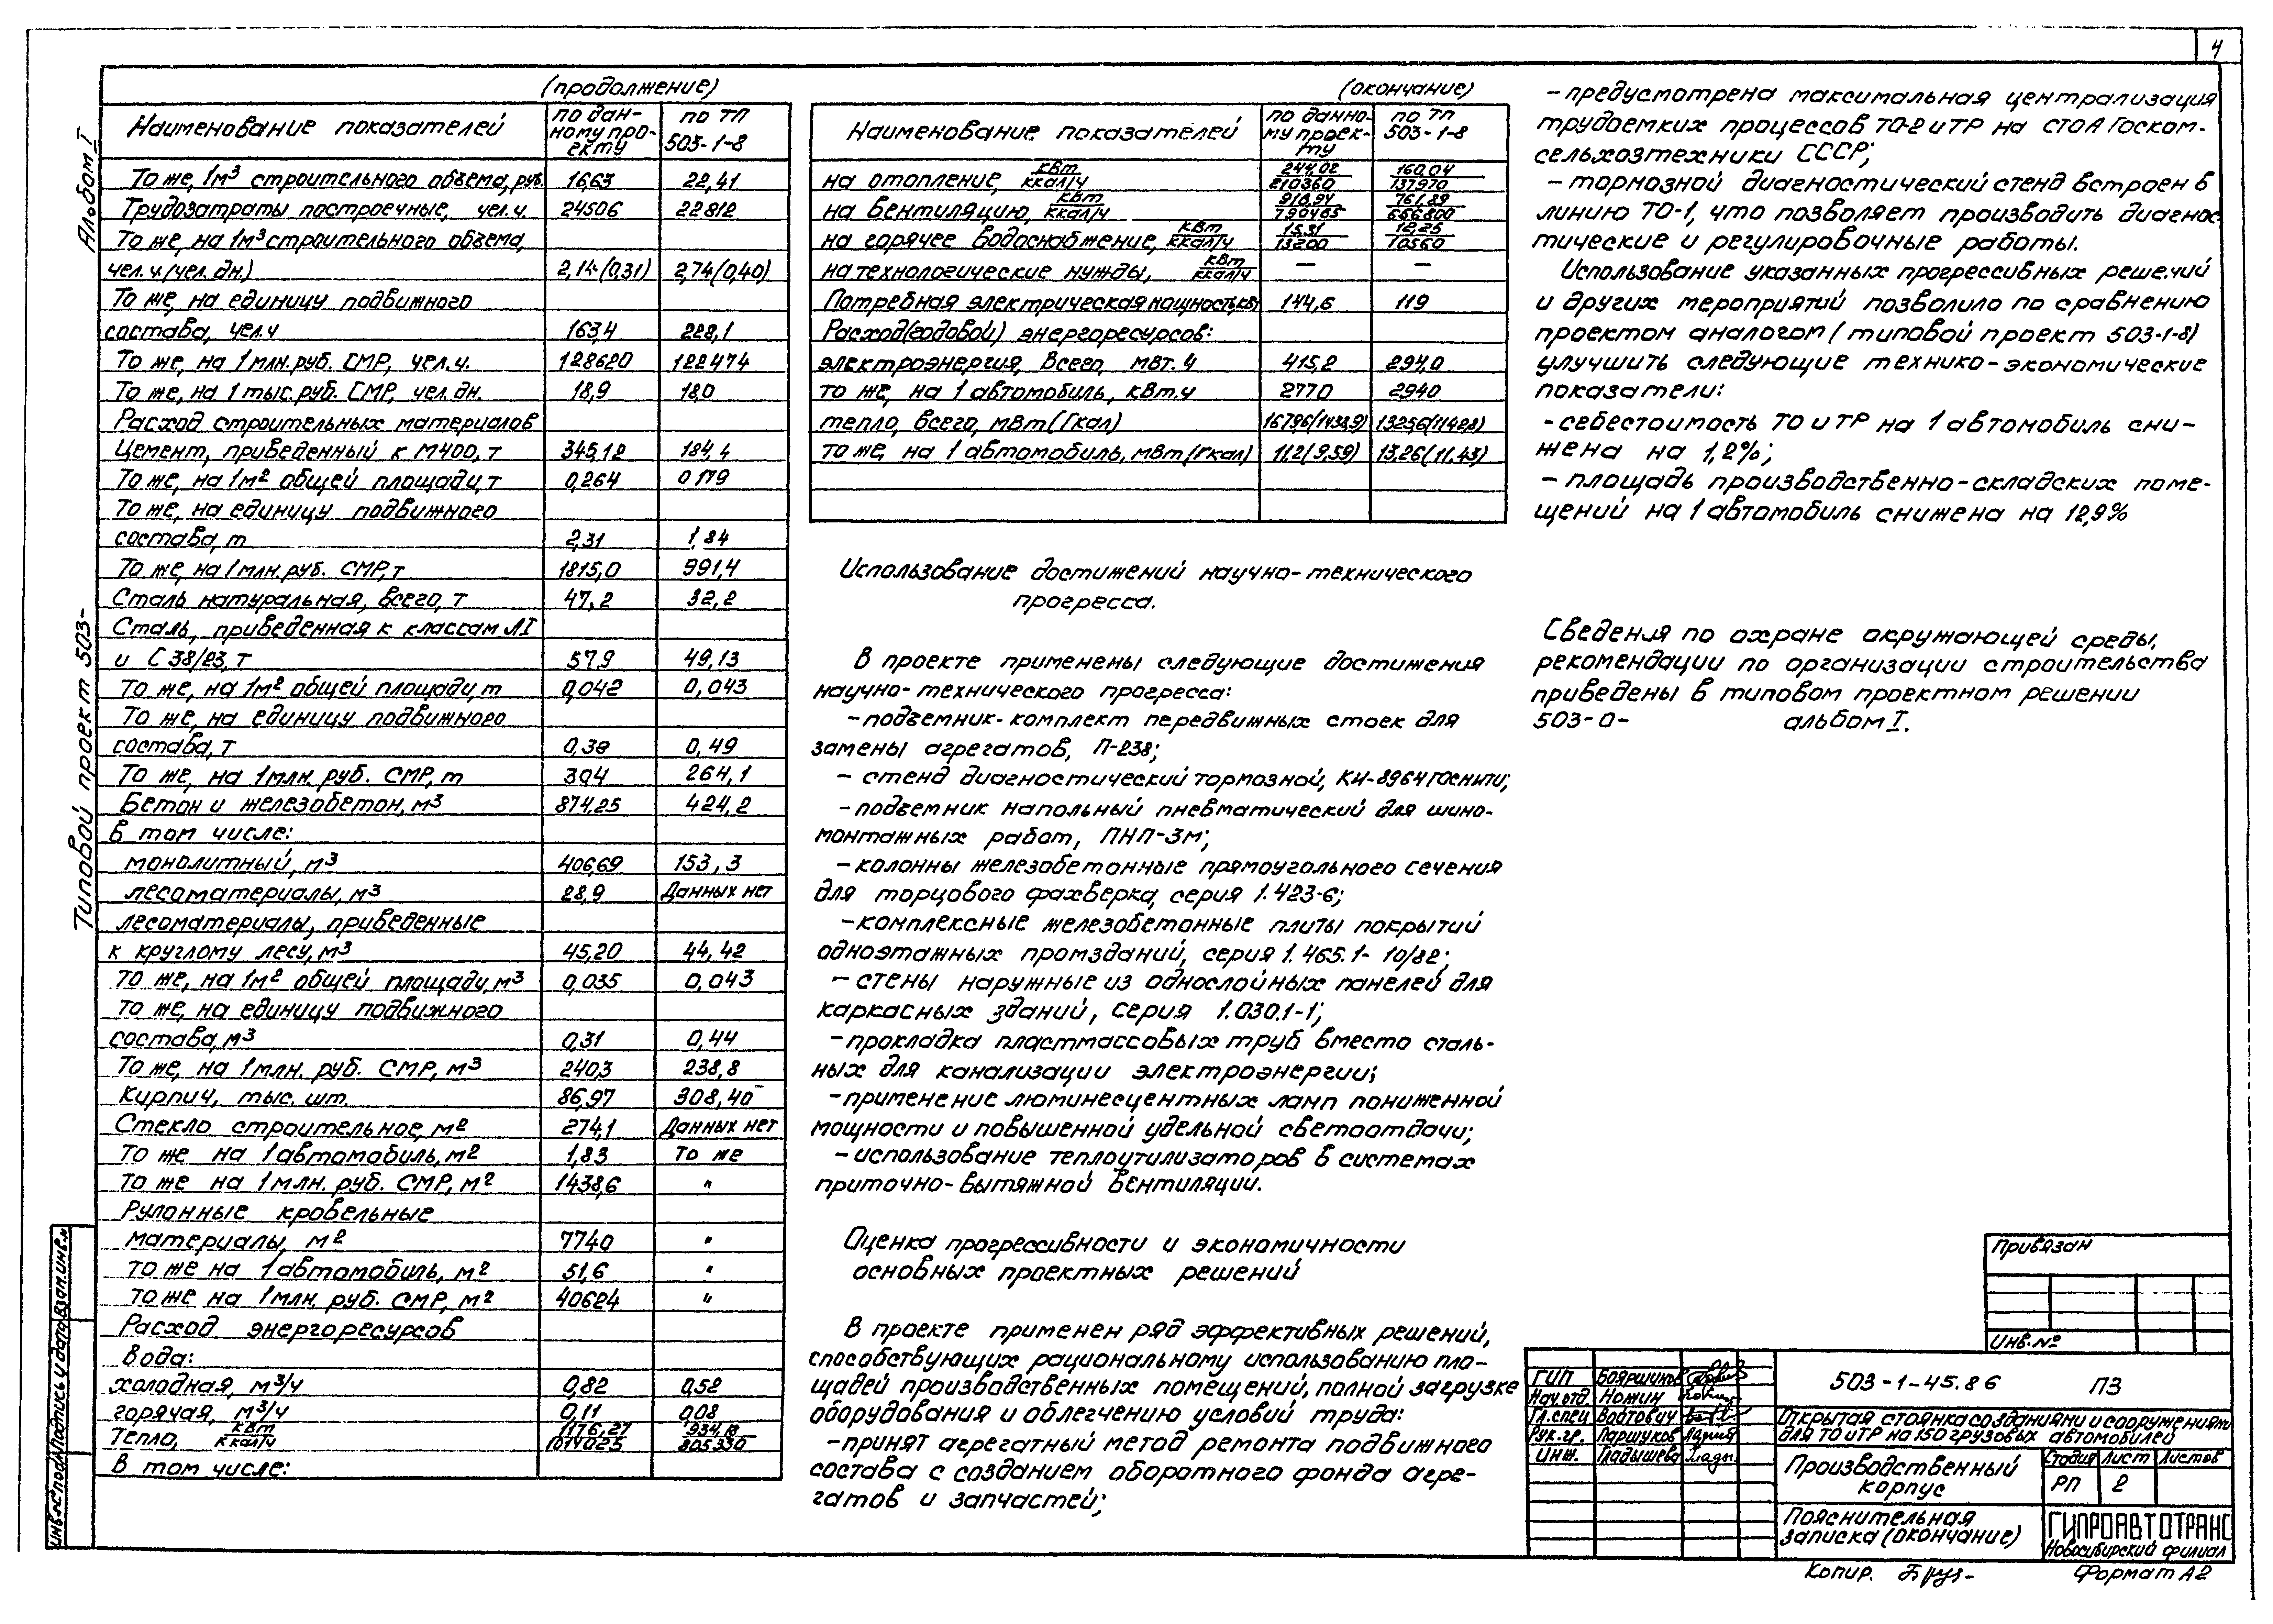 4
Альбом I
Типовой проект 503-
(продолжение)
Наименование показателей | по данному проекту | по ТП 503-1-8
То же, 1м³ строительного объема, руб. | 16,63 | 22,41
Трудозатраты построечные, чел.ч. | 24506 | 22812
То же, на 1м³ строительного объема,
чел.ч.(чел.дн.) | 2,14(0,31) | 2,74(0,40)
То же, на единицу подвижного
состава, чел.ч | 163,4 | 228,1
То же, на 1 млн.руб. СМР, чел.ч. | 128620 | 122474
То же, на 1 тыс.руб. СМР, чел.дн. | 18,9 | 18,0
Расход строительных материалов
Цемент, приведенный к М400, т | 345,12 | 184,4
То же, на 1м² общей площади, т | 0,264 | 0,179
То же, на единицу подвижного
состава, т | 2,31 | 1,84
То же, на 1 млн.руб. СМР, т | 1815,0 | 991,4
Сталь натуральная, всего, т | 47,2 | 32,2
Сталь, приведенная к классам АI
и С 38/23, т | 57,9 | 49,13
То же, на 1м² общей площади, т | 0,042 | 0,043
То же, на единицу подвижного
состава, т | 0,38 | 0,49
То же, на 1 млн. руб. СМР, т | 304 | 264,1
Бетон и железобетон, м³ | 874,25 | 424,2
в том числе:
монолитный, м³ | 406,69 | 153,3
лесоматериалы, м³ | 28,9 | Данных нет
лесоматериалы, приведенные
к круглому лесу, м³ | 45,20 | 44,42
То же, на 1м² общей площади, м³ | 0,035 | 0,043
То же, на единицу подвижного
состава, м³ | 0,31 | 0,44
То же, на 1 млн. руб. СМР, м³ | 240,3 | 238,8
Кирпич, тыс. шт. | 86,97 | 308,40
Стекло строительное, м² | 274,1 | Данных нет
То же на 1 автомобиль, м² | 1,83 | То же
То же на 1 млн. руб. СМР, м² | 1438,6 | "
Рулонные кровельные
материалы, м² | 7740 | "
то же на 1 автомобиль, м² | 51,6 | "
то же на 1 млн. руб. СМР, м² | 40624 | "
Расход энергоресурсов
Вода:
холодная, м³/ч | 0,82 | 0,52
горячая, м³/ч | 0,11 | 0,08
Тепло, кВт/ккал/ч | 1176,27/1014025 | 934,18/805330
В том числе:
(окончание)
Наименование показателей | по данному проекту | по ТП 503-1-8
на отопление, кВт/ккал/ч | 244,02/210360 | 160,04/137970
на вентиляцию, кВт/ккал/ч | 916,94/790465 | 761,89/656800
на горячее водоснабжение, кВт/ккал/ч | 15,31/13200 | 12,25/10560
на технологические нужды, кВт/ккал/ч | — | —
Потребная электрическая мощность, кВт | 144,6 | 119
Расход (годовой) энергоресурсов:
электроэнергия, всего, мвт.ч | 415,2 | 294,0
то же, на 1 автомобиль, кВт.ч | 2770 | 2940
тепло, всего, мВт (Гкал) | 1679,6(1438,9) | 1325,6(1142,8)
то же, на 1 автомобиль, мВт (Гкал) | 11,2(9,59) | 13,26(11,43)
Использование достижений научно-технического
прогресса.
В проекте применены следующие достижения
научно-технического прогресса:
- подъемник-комплект передвижных стоек для
замены агрегатов, П-238;
- стенд диагностический тормозной, КИ-8964 ГОСНИТИ;
- подъемник напольный пневматический для шино-
монтажных работ, ПНП-3м;
- колонны железобетонные прямоугольного сечения
для торцового фахверка, серия 1.423-6;
- комплексные железобетонные плиты покрытий
одноэтажных промзданий, серия 1.465.1-10/82;
- стены наружные из однослойных панелей для
каркасных зданий, серия 1.030.1-1;
- прокладка пластмассовых труб вместо сталь-
ных для канализации электроэнергии;
- применение люминесцентных ламп пониженной
мощности и повышенной удельной светоотдачи;
- использование теплоутилизаторов в системах
приточно-вытяжной вентиляции.
Оценка прогрессивности и экономичности
основных проектных решений
В проекте применен ряд эффективных решений,
способствующих рациональному использованию пло-
щадей производственных помещений, полной загрузке
оборудования и облегчению условий труда:
- принят агрегатный метод ремонта подвижного
состава с созданием оборотного фонда агре-
гатов и запчастей;
- предусмотрена максимальная централизация
трудоемких процессов ТО-2 и ТР на СТОА Госком-
сельхозтехники СССР;
- тормозной диагностический стенд встроен в
линию ТО-1, что позволяет производить диагнос-
тические и регулировочные работы.
Использование указанных прогрессивных решений
и других мероприятий позволило по сравнению
проектом аналогом (типовой проект 503-1-8)
улучшить следующие технико-экономические
показатели:
- себестоимость ТО и ТР на 1 автомобиль сни-
жена на 1,2%;
- площадь производственно-складских поме-
щений на 1 автомобиль снижена на 12,9%
Сведения по охране окружающей среды,
рекомендации по организации строительства
приведены в типовом проектном решении
503-0- альбом I.
Привязан
Инв.№
ГИП Бояршинов
Нач.отд. Ножин
Гл.спец Войтович
Рук.гр. Паршуков
Инж. Гладышева
503-1-45.86 ПЗ
Открытая стоянка со зданиями и сооружениями
для ТО и ТР на 150 грузовых автомобилей
Производственный
корпус
Стадия Лист Листов
РП 2
Пояснительная
записка (окончание)
ГИПРОАВТОТРАНС
Новосибирский филиал
Копир.
Формат А2
Инв.№ подл. Подпись и дата Взам.инв.№